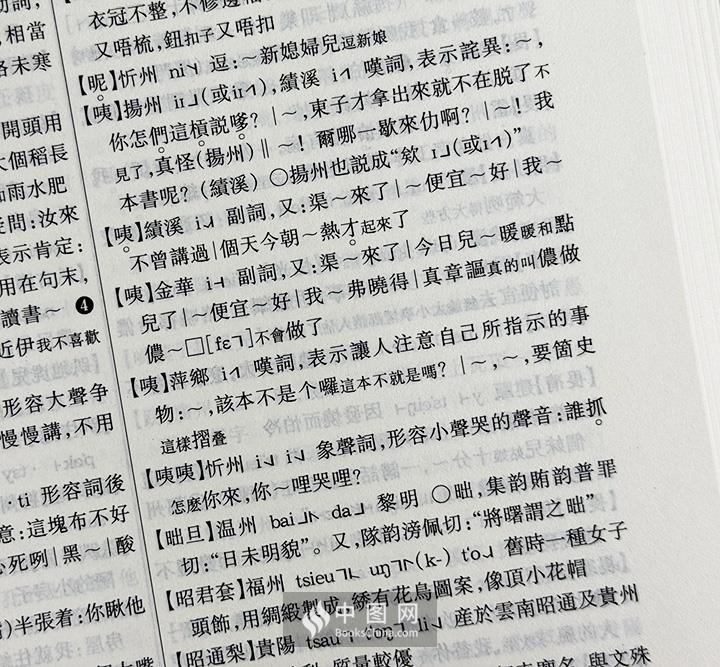 衣冠不整，不修邊
又唔梳，鈕扣子又唔扣
【昵】忻州 ni˥˩ 逗：～新媳婦兒逗新娘
【咦】揚州 iɪ˩（或iɪ˦），績溪 i˧˥ 嘆詞，表示詫異：～，
你怎們這槓説嗲？｜～，東子才拿出來就不在脱了不
見了，真怪（揚州）‖～！爾哪一歇來仂啊？｜～！我
本書呢？（績溪）〇揚州也説成“欸 i˩（或i˧）”
【咦】績溪 副詞，又：渠～來了｜～便宜～好｜我～
不曾講過｜個天今朝～熱才起來了
【咦】金華 副詞，又：渠～來了｜今日兒～暖暖和點
兒了｜～便宜～好｜我～弗曉得｜真章謳真的叫儂做
儂～□[fɛ˥]不會做了
【咦】萍鄉 嘆詞，表示讓人注意自己所指示的事
物：～，該本不是个囉這本不就是嗎？｜～，～，要箇史
這樣摺叠
【咦咦】忻州 象聲詞，形容小聲哭的聲音：誰抓
怎麽你來，你～哩哭哩？
【昢旦】温州 黎明 〇昢，集韵賄韵普罪
切：“日未明貌”。又，隊韵滂佩切：“將曙謂之昢”
【昭君套】福州 舊時一種女子
頭飾，用綢緞製成，綉有花鳥圖案，像頂小花帽
【昭通梨】貴陽 tsau 產於雲南昭通及貴州
質量較優
與文殊
相當
各未寒
開頭用
大個稻長
如雨水肥
疑問：汝來
表示肯定：
用在句末，
讀書～ ❹
近伊我不喜歡
形容大聲争
慢慢講，不用
·ti 形容詞後
意：這塊布不好
心死咧｜黑～｜酸
半張着：你瞅他
中图网
BooksChina.com